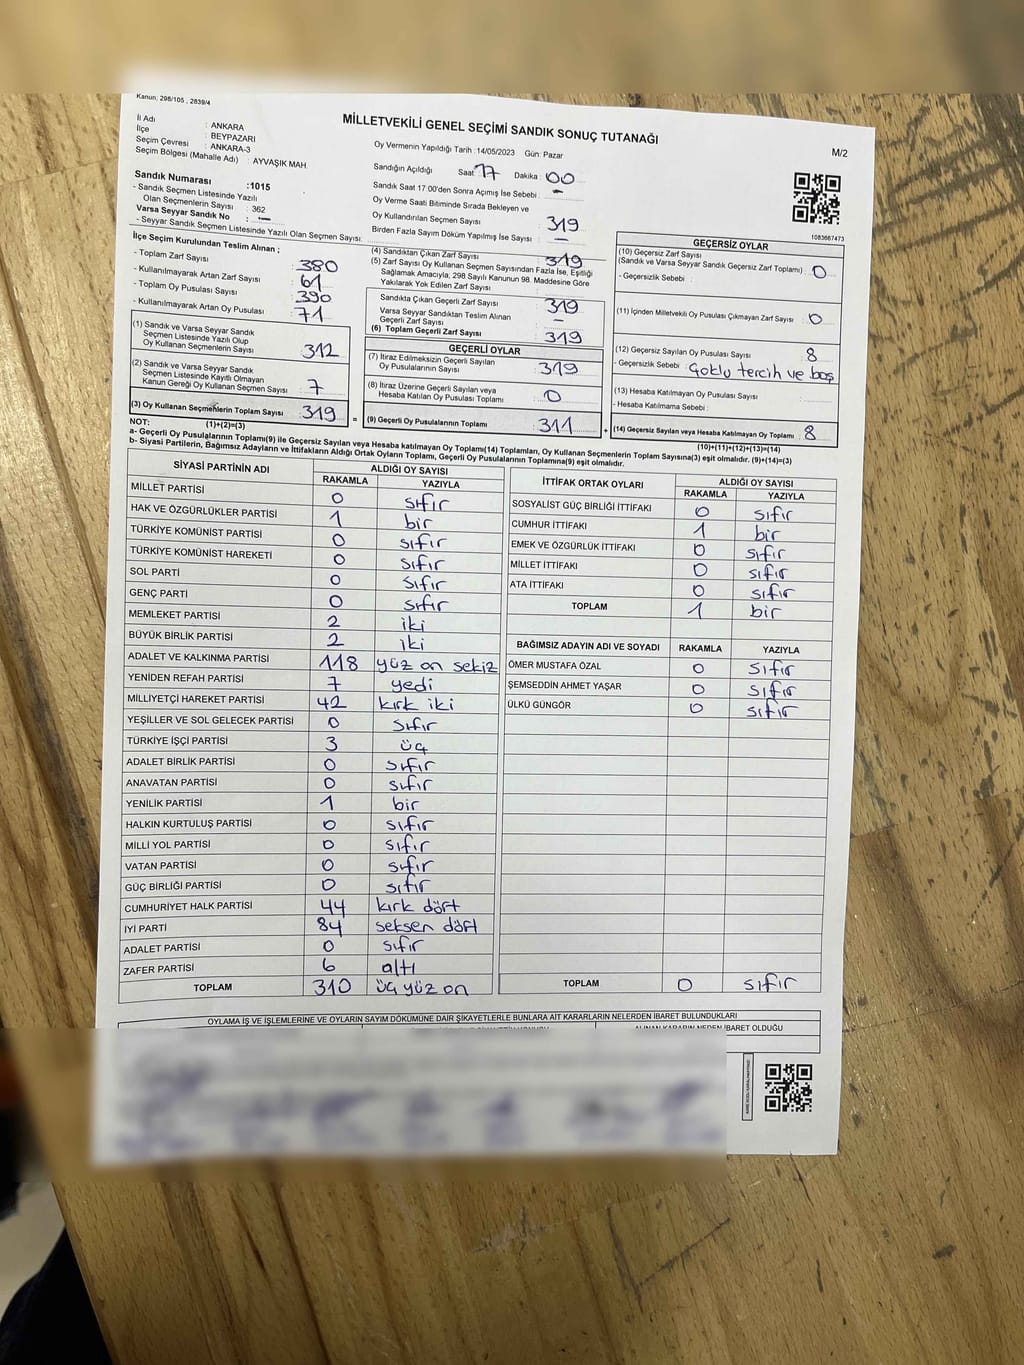 Kanun, 298/105 , 2839/4
MİLLETVEKİLİ GENEL SEÇİMİ SANDIK SONUÇ TUTANAĞI
M/2
İl Adı : ANKARA
İlçe : BEYPAZARI
Seçim Çevresi : ANKARA-3
Seçim Bölgesi (Mahalle Adı) : AYVAŞIK MAH.
Sandık Numarası :1015
- Sandık Seçmen Listesinde Yazılı
Olan Seçmenlerin Sayısı : 362
Varsa Seyyar Sandık No : —
- Seyyar Sandık Seçmen Listesinde Yazılı Olan Seçmen Sayısı:
Oy Vermenin Yapıldığı Tarih :14/05/2023 Gün: Pazar
Sandığın Açıldığı Saat: 17 Dakika : 00
Sandık Saat 17 00'den Sonra Açımış İse Sebebi : —
Oy Verme Saati Bitiminde Sırada Bekleyen ve
Oy Kullandırılan Seçmen Sayısı : 319
Birden Fazla Sayım Döküm Yapılmış İse Sayısı : —
1083667473
İlçe Seçim Kurulundan Teslim Alınan ;
- Toplam Zarf Sayısı : 380
- Kullanılmayarak Artan Zarf Sayısı : 61
- Toplam Oy Pusulası Sayısı : 390
- Kullanılmayarak Artan Oy Pusulası : 71
(1) Sandık ve Varsa Seyyar Sandık
Seçmen Listesinde Yazılı Olup
Oy Kullanan Seçmenlerin Sayısı : 312
(2) Sandık ve Varsa Seyyar Sandık
Seçmen Listesinde Kayıtlı Olmayan
Kanun Gereği Oy Kullanan Seçmen Sayısı : 7
(3) Oy Kullanan Seçmenlerin Toplam Sayısı : 319
(1)+(2)=(3)
(4) Sandıktan Çıkan Zarf Sayısı : 319
(5) Zarf Sayısı Oy Kullanan Seçmen Sayısından Fazla İse, Eşitliği
Sağlamak Amacıyla; 298 Sayılı Kanunun 98. Maddesine Göre
Yakılarak Yok Edilen Zarf Sayısı :
Sandıkta Çıkan Geçerli Zarf Sayısı : 319
Varsa Seyyar Sandıktan Teslim Alınan
Geçerli Zarf Sayısı : —
(6) Toplam Geçerli Zarf Sayısı : 319
GEÇERLİ OYLAR
(7) İtiraz Edilmeksizin Geçerli Sayılan
Oy Pusulalarının Sayısı : 319
(8) İtiraz Üzerine Geçerli Sayılan veya
Hesaba Katılan Oy Pusulası Toplamı : 0
= (9) Geçerli Oy Pusulalarının Toplamı : 311
GEÇERSİZ OYLAR
(10) Geçersiz Zarf Sayısı
(Sandık ve Varsa Seyyar Sandık Geçersiz Zarf Toplamı) : 0
- Geçersizlik Sebebi :
(11) İçinden Milletvekili Oy Pusulası Çıkmayan Zarf Sayısı : 0
(12) Geçersiz Sayılan Oy Pusulası Sayısı : 8
- Geçersizlik Sebebi : Çoklu tercih ve boş
(13) Hesaba Katılmayan Oy Pusulası Sayısı :
- Hesaba Katılmama Sebebi :
+ (14) Geçersiz Sayılan veya Hesaba Katılmayan Oy Toplamı : 8
(10)+(11)+(12)+(13)=(14)
NOT:
a- Geçerli Oy Pusulalarının Toplamı(9) ile Geçersiz Sayılan veya Hesaba katılmayan Oy Toplamı(14) Toplamları, Oy Kullanan Seçmenlerin Toplam Sayısına(3) eşit olmalıdır. (9)+(14)=(3)
b- Siyasi Partilerin, Bağımsız Adayların ve İttifakların Aldığı Ortak Oyların Toplamı, Geçerli Oy Pusulalarının Toplamına(9) eşit olmalıdır.
SİYASİ PARTİNİN ADI ALDIĞI OY SAYISI
RAKAMLA YAZIYLA
MİLLET PARTİSİ 0 sıfır
HAK VE ÖZGÜRLÜKLER PARTİSİ 1 bir
TÜRKİYE KOMÜNİST PARTİSİ 0 sıfır
TÜRKİYE KOMÜNİST HAREKETİ 0 sıfır
SOL PARTİ 0 sıfır
GENÇ PARTİ 0 sıfır
MEMLEKET PARTİSİ 2 iki
BÜYÜK BİRLİK PARTİSİ 2 iki
ADALET VE KALKINMA PARTİSİ 118 yüz on sekiz
YENİDEN REFAH PARTİSİ 7 yedi
MİLLİYETÇİ HAREKET PARTİSİ 42 kırk iki
YEŞİLLER VE SOL GELECEK PARTİSİ 0 sıfır
TÜRKİYE İŞÇİ PARTİSİ 3 üç
ADALET BİRLİK PARTİSİ 0 sıfır
ANAVATAN PARTİSİ 0 sıfır
YENİLİK PARTİSİ 1 bir
HALKIN KURTULUŞ PARTİSİ 0 sıfır
MİLLİ YOL PARTİSİ 0 sıfır
VATAN PARTİSİ 0 sıfır
GÜÇ BİRLİĞİ PARTİSİ 0 sıfır
CUMHURİYET HALK PARTİSİ 44 kırk dört
İYİ PARTİ 84 seksen dört
ADALET PARTİSİ 0 sıfır
ZAFER PARTİSİ 6 altı
TOPLAM 310 üç yüz on
İTTİFAK ORTAK OYLARI ALDIĞI OY SAYISI
RAKAMLA YAZIYLA
SOSYALİST GÜÇ BİRLİĞİ İTTİFAKI 0 sıfır
CUMHUR İTTİFAKI 1 bir
EMEK VE ÖZGÜRLÜK İTTİFAKI 0 sıfır
MİLLET İTTİFAKI 0 sıfır
ATA İTTİFAKI 0 sıfır
TOPLAM 1 bir
BAĞIMSIZ ADAYIN ADI VE SOYADI RAKAMLA YAZIYLA
ÖMER MUSTAFA ÖZAL 0 sıfır
ŞEMSEDDİN AHMET YAŞAR 0 sıfır
ÜLKÜ GÜNGÖR 0 sıfır
TOPLAM 0 sıfır
OYLAMA İŞ VE İŞLEMLERİNE VE OYLARIN SAYIM DÖKÜMÜNE DAİR ŞİKAYETLERLE BUNLARA AİT KARARLARIN NELERDEN İBARET BULUNDUKLARI
ALINAN KARARIN NEDEN İBARET OLDUĞU